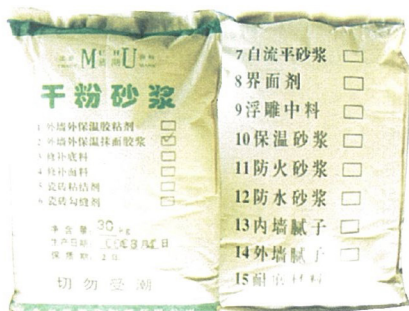 MUHU
干粉砂浆
1 外墙外保温胶粘剂
2 外墙外保温抹面胶浆
3 修补底料
4 修补面料
5 瓷砖粘结剂
6 瓷砖勾缝剂
净含量 30 kg
生产日期 日
保质期
切勿受潮
7 自流平砂浆
8 界面剂
9 浮雕中料
10 保温砂浆
11 防火砂浆
12 防水砂浆
13 内墙腻子
14 外墙腻子
15 耐磨材料